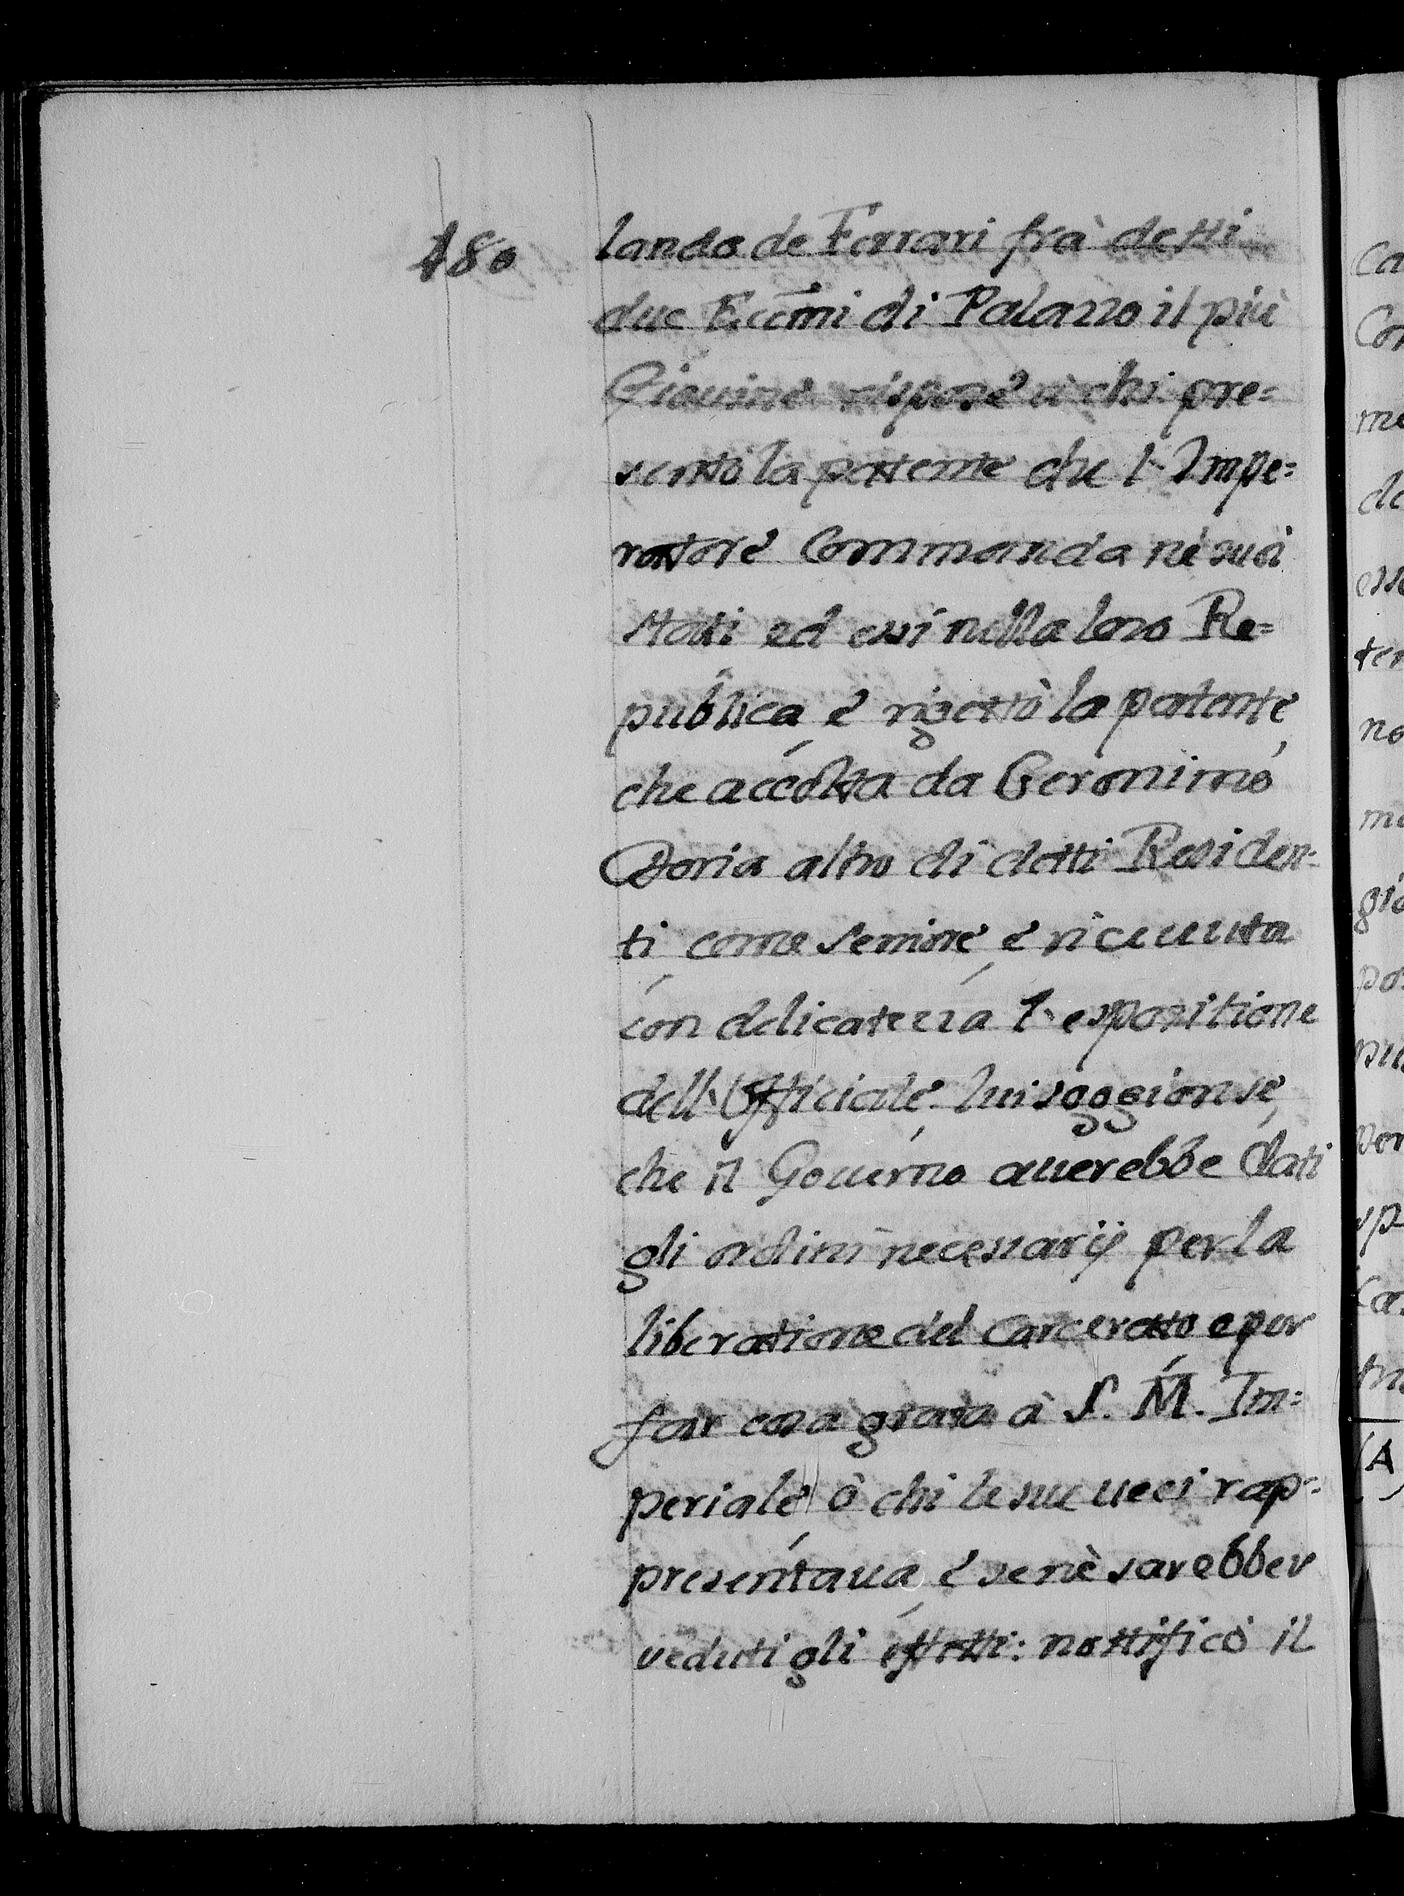 180
lando de Ferrari frà detti
due Eccmi di Palazzo il più
Giovine rispose à chi pre=
sentò la pattente che l'Impe=
rattore Commanda nè suoi
Stati ed essi nella loro Re=
publica, e rigettò la patente,
che accolta da Geronimo
Doria altro di detti Residen=
ti come Seniore, e riceuuta
con delicatezza l'espositione
dell'Officiale lui soggionse,
che il Gouerno auerebbe dati
gli ordini necessarij per la
liberatione del Carceratto e per
far cosa grata à S. M. Im=
periale, ò chi le sue ueci rap=
presentaua, e se nè sarebber
veduti gli effetti: nottificò il
Ca
Con
me
de
esse
ter
no
ma
gia
pos
più
per
sp
Ca
tra
(A)